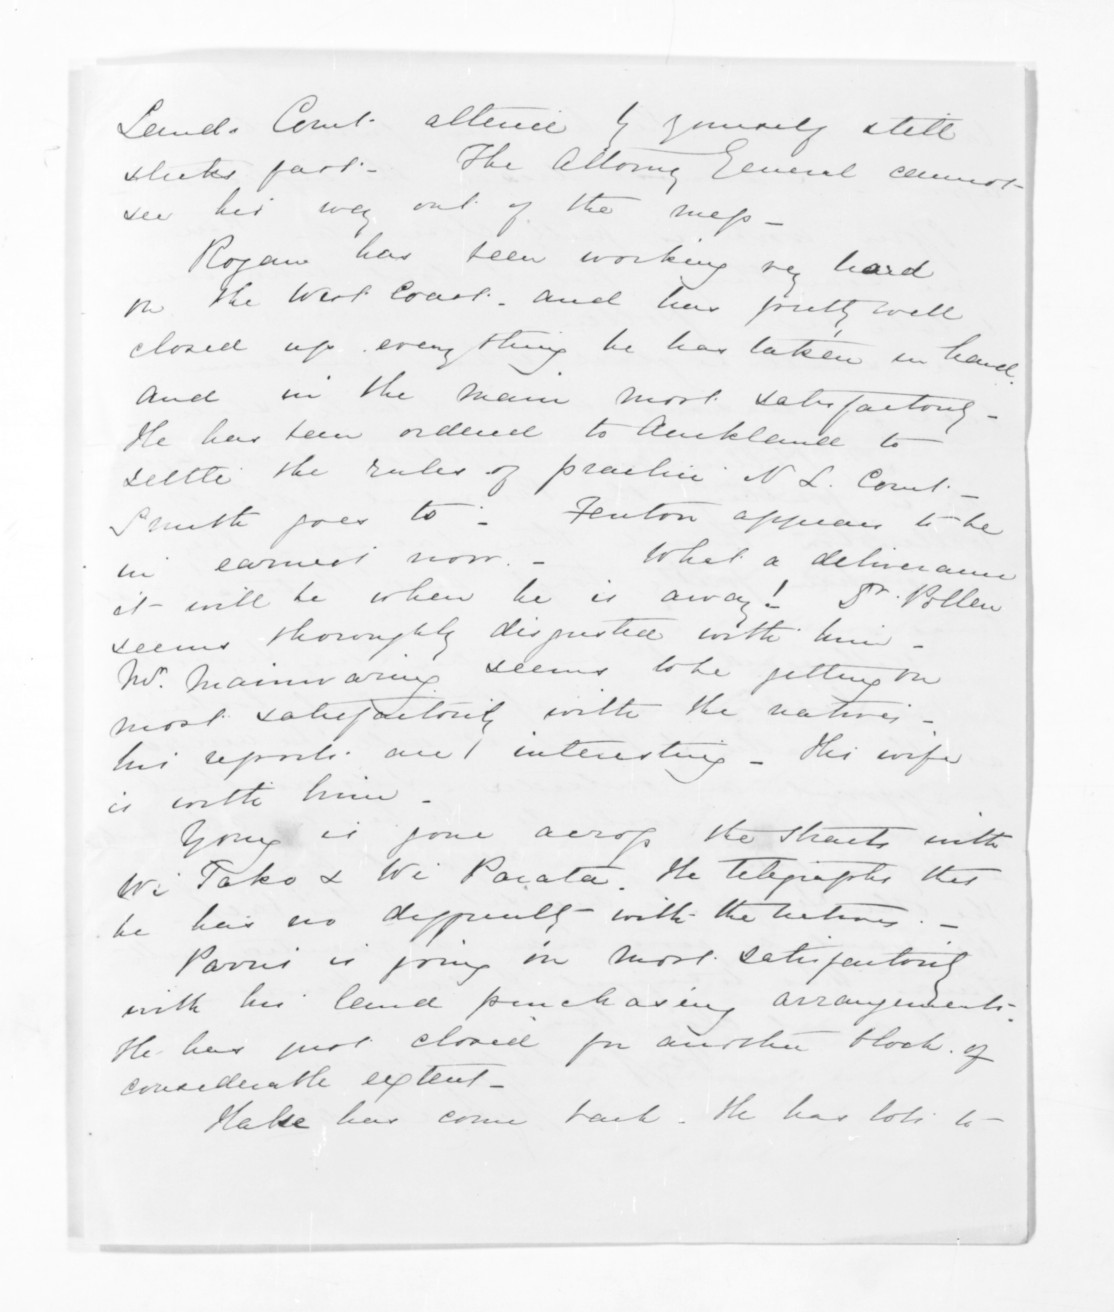 Lands Court altered by yourself still
sticks fast - The Attorney General cannot
see his way out of the mess -
Rogan has been working very hard
on the West Coast - and has pretty well
closed up everything he has taken in hand.
and in the main most satisfactorily -
He has been ordered to Auckland to
settle the rules of practice N L. Court -
Smith goes to - Fenton appears to be
in earnest now. - What a deliverance
it will be when he is away! Dr. Pollen
seems thoroughly disgusted with him -
Mr. Mainwaring seems to be getting on
most satisfactorily with the natives -
his reports are interesting - His wife
is with him -
Young is gone across the Straits with
Wi Tako & Wi Parata. He telegraphs that
he has no difficulty with the natives. -
Parris is going on most satisfactorily
with his land purchasing arrangements.
He has just closed for another block of
considerable extent -
Halse has come back - He has lots to